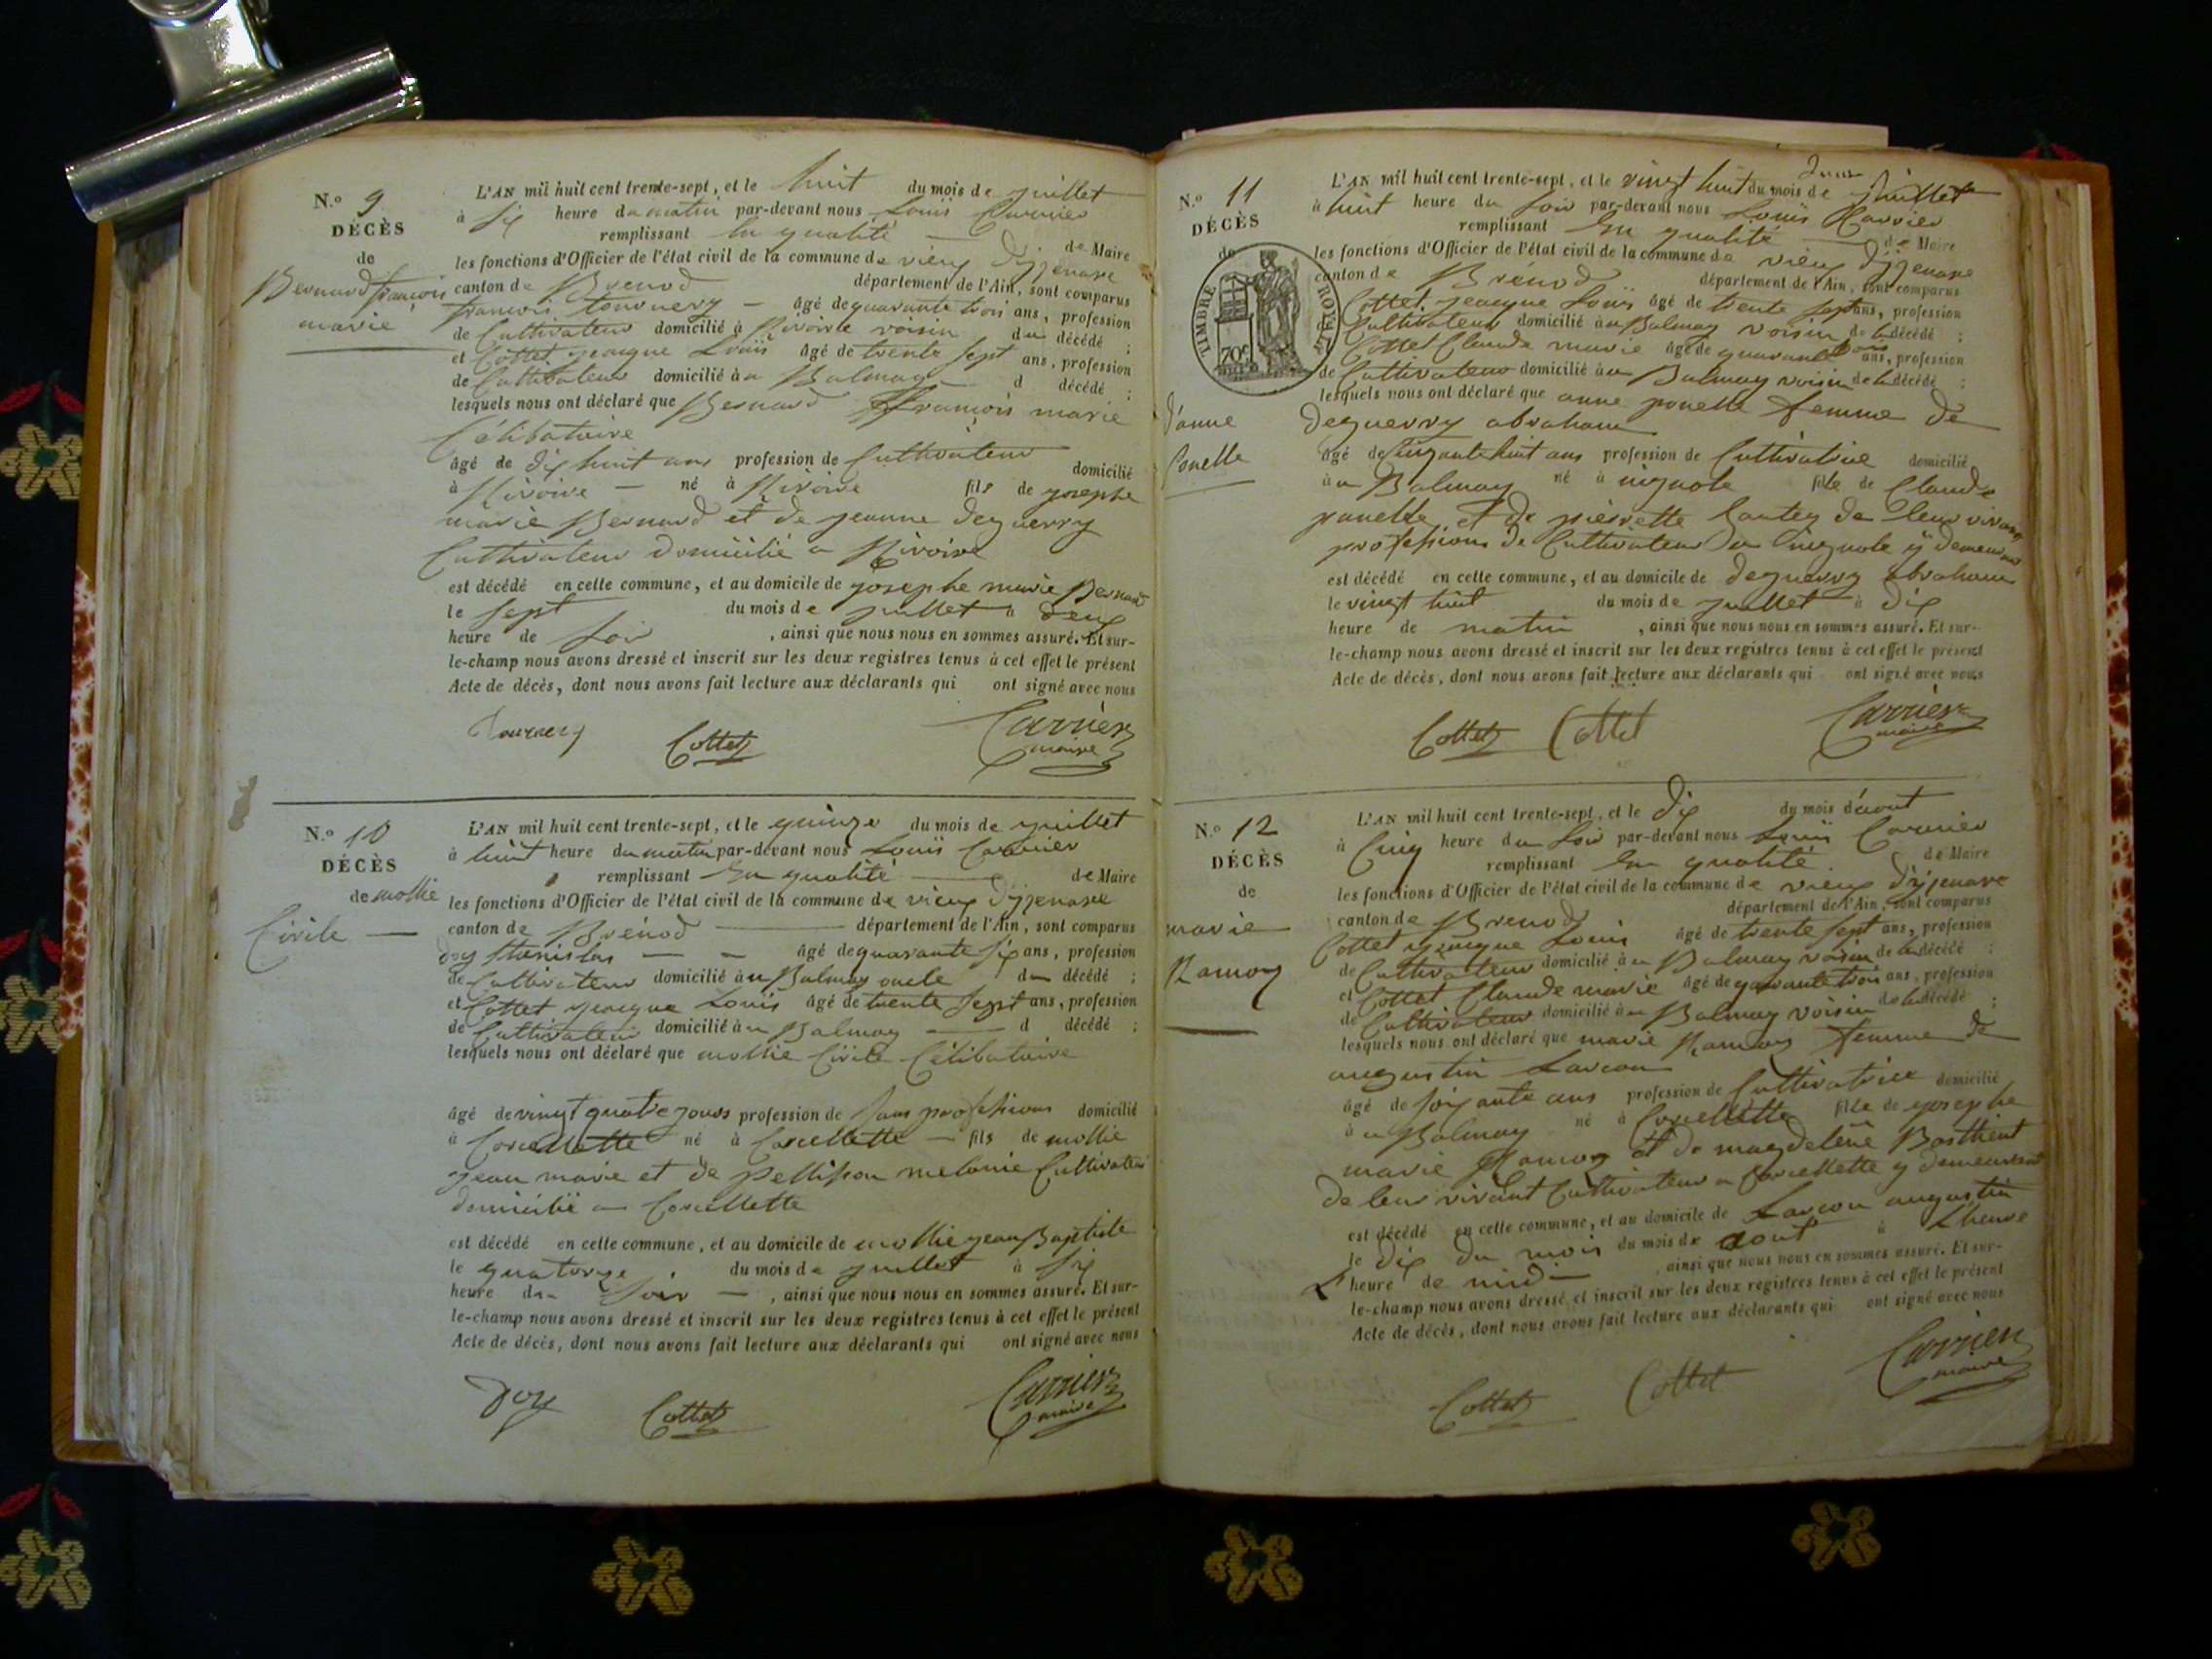 N.º 9
DÉCÈS
de
Bernard françois
marie
L'AN mil huit cent trente-sept, et le huit du mois de juillet
à six heure du matin par-devant nous Louis Carrier
remplissant En qualité de Maire
les fonctions d'Officier de l'état civil de la commune de vieux d'izenave
canton de Brenod département de l'Ain, sont comparus
françois tournery âgé de quarante trois ans, profession
de Cultivateur domicilié à Rivoire voisin du décédé ;
et Cottet jacque Louis âgé de trente sept ans, profession
de Cultivateur domicilié à u Balmay d décédé ;
lesquels nous ont déclaré que Bernard françois marie
Célibataire
âgé de dix huit ans profession de Cultivateur domicilié
à Rivoire né à Rivoire fils de josephe
marie Bernard et de jeanne deguerry
Cultivateur domicilié a Rivoire
est décédé en cette commune, et au domicile de josephe marie Bernard
le sept du mois de juillet à deux
heure de soir , ainsi que nous nous en sommes assuré. Et sur-
le-champ nous avons dressé et inscrit sur les deux registres tenus à cet effet le présent
Acte de décès, dont nous avons fait lecture aux déclarants qui ont signé avec nous
Tournery Cottet Carrier
maire
N.º 10
DÉCÈS
de mollie
Cirile
L'AN mil huit cent trente-sept, et le quinze du mois de juillet
à huit heure du matin par-devant nous Louis Carrier
remplissant En qualité de Maire
les fonctions d'Officier de l'état civil de la commune de vieux d'izenave
canton de Brénod département de l'Ain, sont comparus
doy stanislas âgé de quarante six ans, profession
de Cultivateur domicilié à u Balmay oncle du décédé ;
et Cottet jacque Louis âgé de trente sept ans, profession
de Cultivateur domicilié à u Balmay d décédé ;
lesquels nous ont déclaré que mollie Cirile Célibataire
âgé de vingt quatre jours profession de sans profession domicilié
à Corcellette né à Corcellette fils de mollie
jean marie et de pellisson melanie Cultivateur
domicilié a Corcellette
est décédé en cette commune, et au domicile de mollie jean Baptiste
le quatorze du mois de juillet à six
heure du soir , ainsi que nous nous en sommes assuré. Et sur-
le-champ nous avons dressé et inscrit sur les deux registres tenus à cet effet le présent
Acte de décès, dont nous avons fait lecture aux déclarants qui ont signé avec nous
Doy Cottet Carrier
maire
N.º 11
DÉCÈS
de
TIMBRE ROYAL
70c
d'anne
Ponelle
L'AN mil huit cent trente-sept, et le vingt huit du mois de juillet
à huit heure du soir par-devant nous Louis Carrier
remplissant En qualité de Maire
les fonctions d'Officier de l'état civil de la commune de vieux d'izenave
canton de Brénod département de l'Ain, sont comparus
Cottet jacque Louis âgé de trente sept ans, profession
Cultivateur domicilié à u Balmay voisin de la décédé ;
Cottet Claude marie âgé de quarante trois ans, profession
de Cultivateur domicilié à u Balmay voisin de la décédé ;
lesquels nous ont déclaré que anne ponelle femme de
deguerry abraham
âgé de Cinquante huit ans profession de Cultivatrice domicilié
à u Balmay né à vignole fille de Claude
ponelle et de pierrette de leur vivant
profession de Cultivateur a vignole y demeurant
est décédé en cette commune, et au domicile de deguerry abraham
le vingt huit du mois de juillet à dix
heure de matin , ainsi que nous nous en sommes assuré. Et sur-
le-champ nous avons dressé et inscrit sur les deux registres tenus à cet effet le présent
Acte de décès, dont nous avons fait lecture aux déclarants qui ont signé avec nous
Cottet Cottet Carrier
maire
N.º 12
DÉCÈS
de
marie
Ramoy
L'AN mil huit cent trente-sept, et le dix du mois d'aout
à Cinq heure du soir par-devant nous Louis Carrier
remplissant En qualité de Maire
les fonctions d'Officier de l'état civil de la commune de vieux d'izenave
canton de Brenod département de l'Ain, sont comparus
Cottet jacque Louis âgé de trente sept ans, profession
de Cultivateur domicilié à u Balmay voisin de la décédé ;
et Cottet Claude marie âgé de quarante trois ans, profession
de Cultivateur domicilié à u Balmay voisin de la décédé ;
lesquels nous ont déclaré que marie Ramoy femme de
augustin Larcon
âgé de soixante ans profession de Cultivatrice domicilié
à u Balmay né à Corcellette fille de josephe
marie Ramoy et de magdeleine Basthient
de leur vivant Cultivateur a Corcellette y demeurant
est décédé en cette commune, et au domicile de Larcon augustin
le dix du mois du mois de aout à L'heure
L' heure de midi , ainsi que nous nous en sommes assuré. Et sur-
le-champ nous avons dressé et inscrit sur les deux registres tenus à cet effet le présent
Acte de décès, dont nous avons fait lecture aux déclarants qui ont signé avec nous
Cottet Cottet Carrier
maire